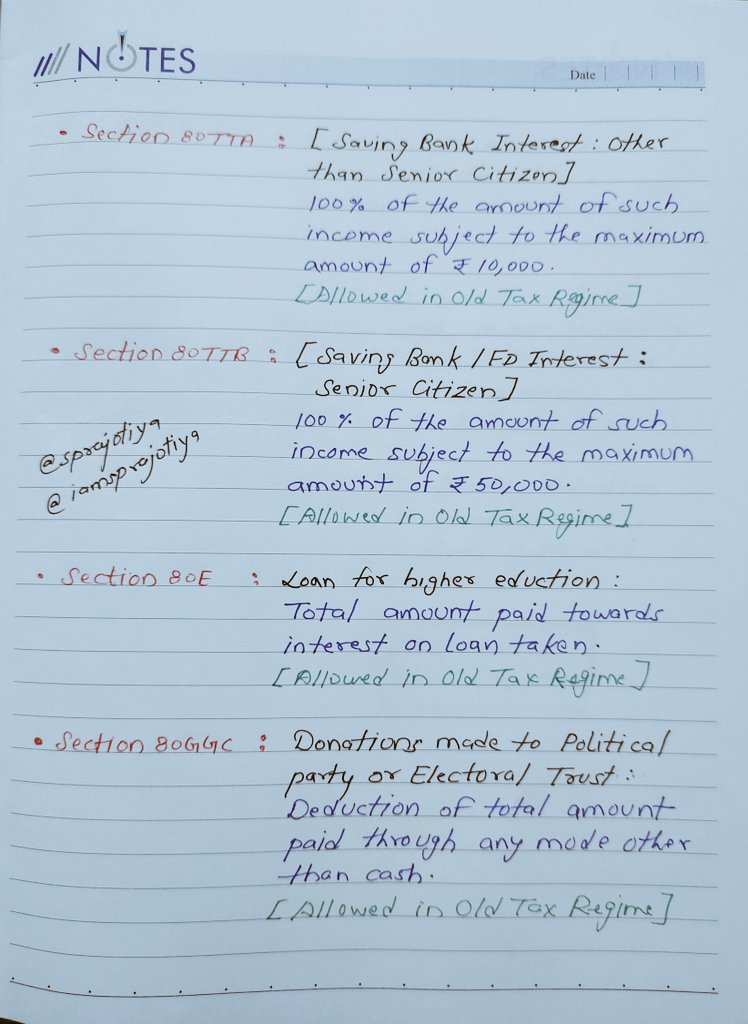 NOTES
Date
• Section 80TTA : [Saving Bank Interest : Other
than Senior Citizen]
100% of the amount of such
income subject to the maximum
amount of ₹ 10,000.
[Allowed in Old Tax Regime]
• Section 80TTB : [Saving Bank / FD Interest :
Senior Citizen]
100 % of the amount of such
income subject to the maximum
amount of ₹ 50,000.
[Allowed in Old Tax Regime]
@sprajotiya
@iamsprajotiya
• Section 80E : Loan for higher eduction :
Total amount paid towards
interest on loan taken.
[Allowed in Old Tax Regime]
• Section 80GGC : Donations made to Political
party or Electoral Trust :
Deduction of total amount
paid through any mode other
than cash.
[Allowed in Old Tax Regime]